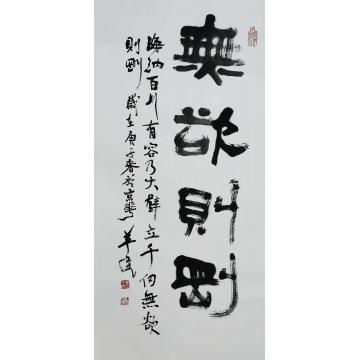 無欲則剛
海納百川有容乃大壁立千仞無欲
則剛 歲在庚子春於京華